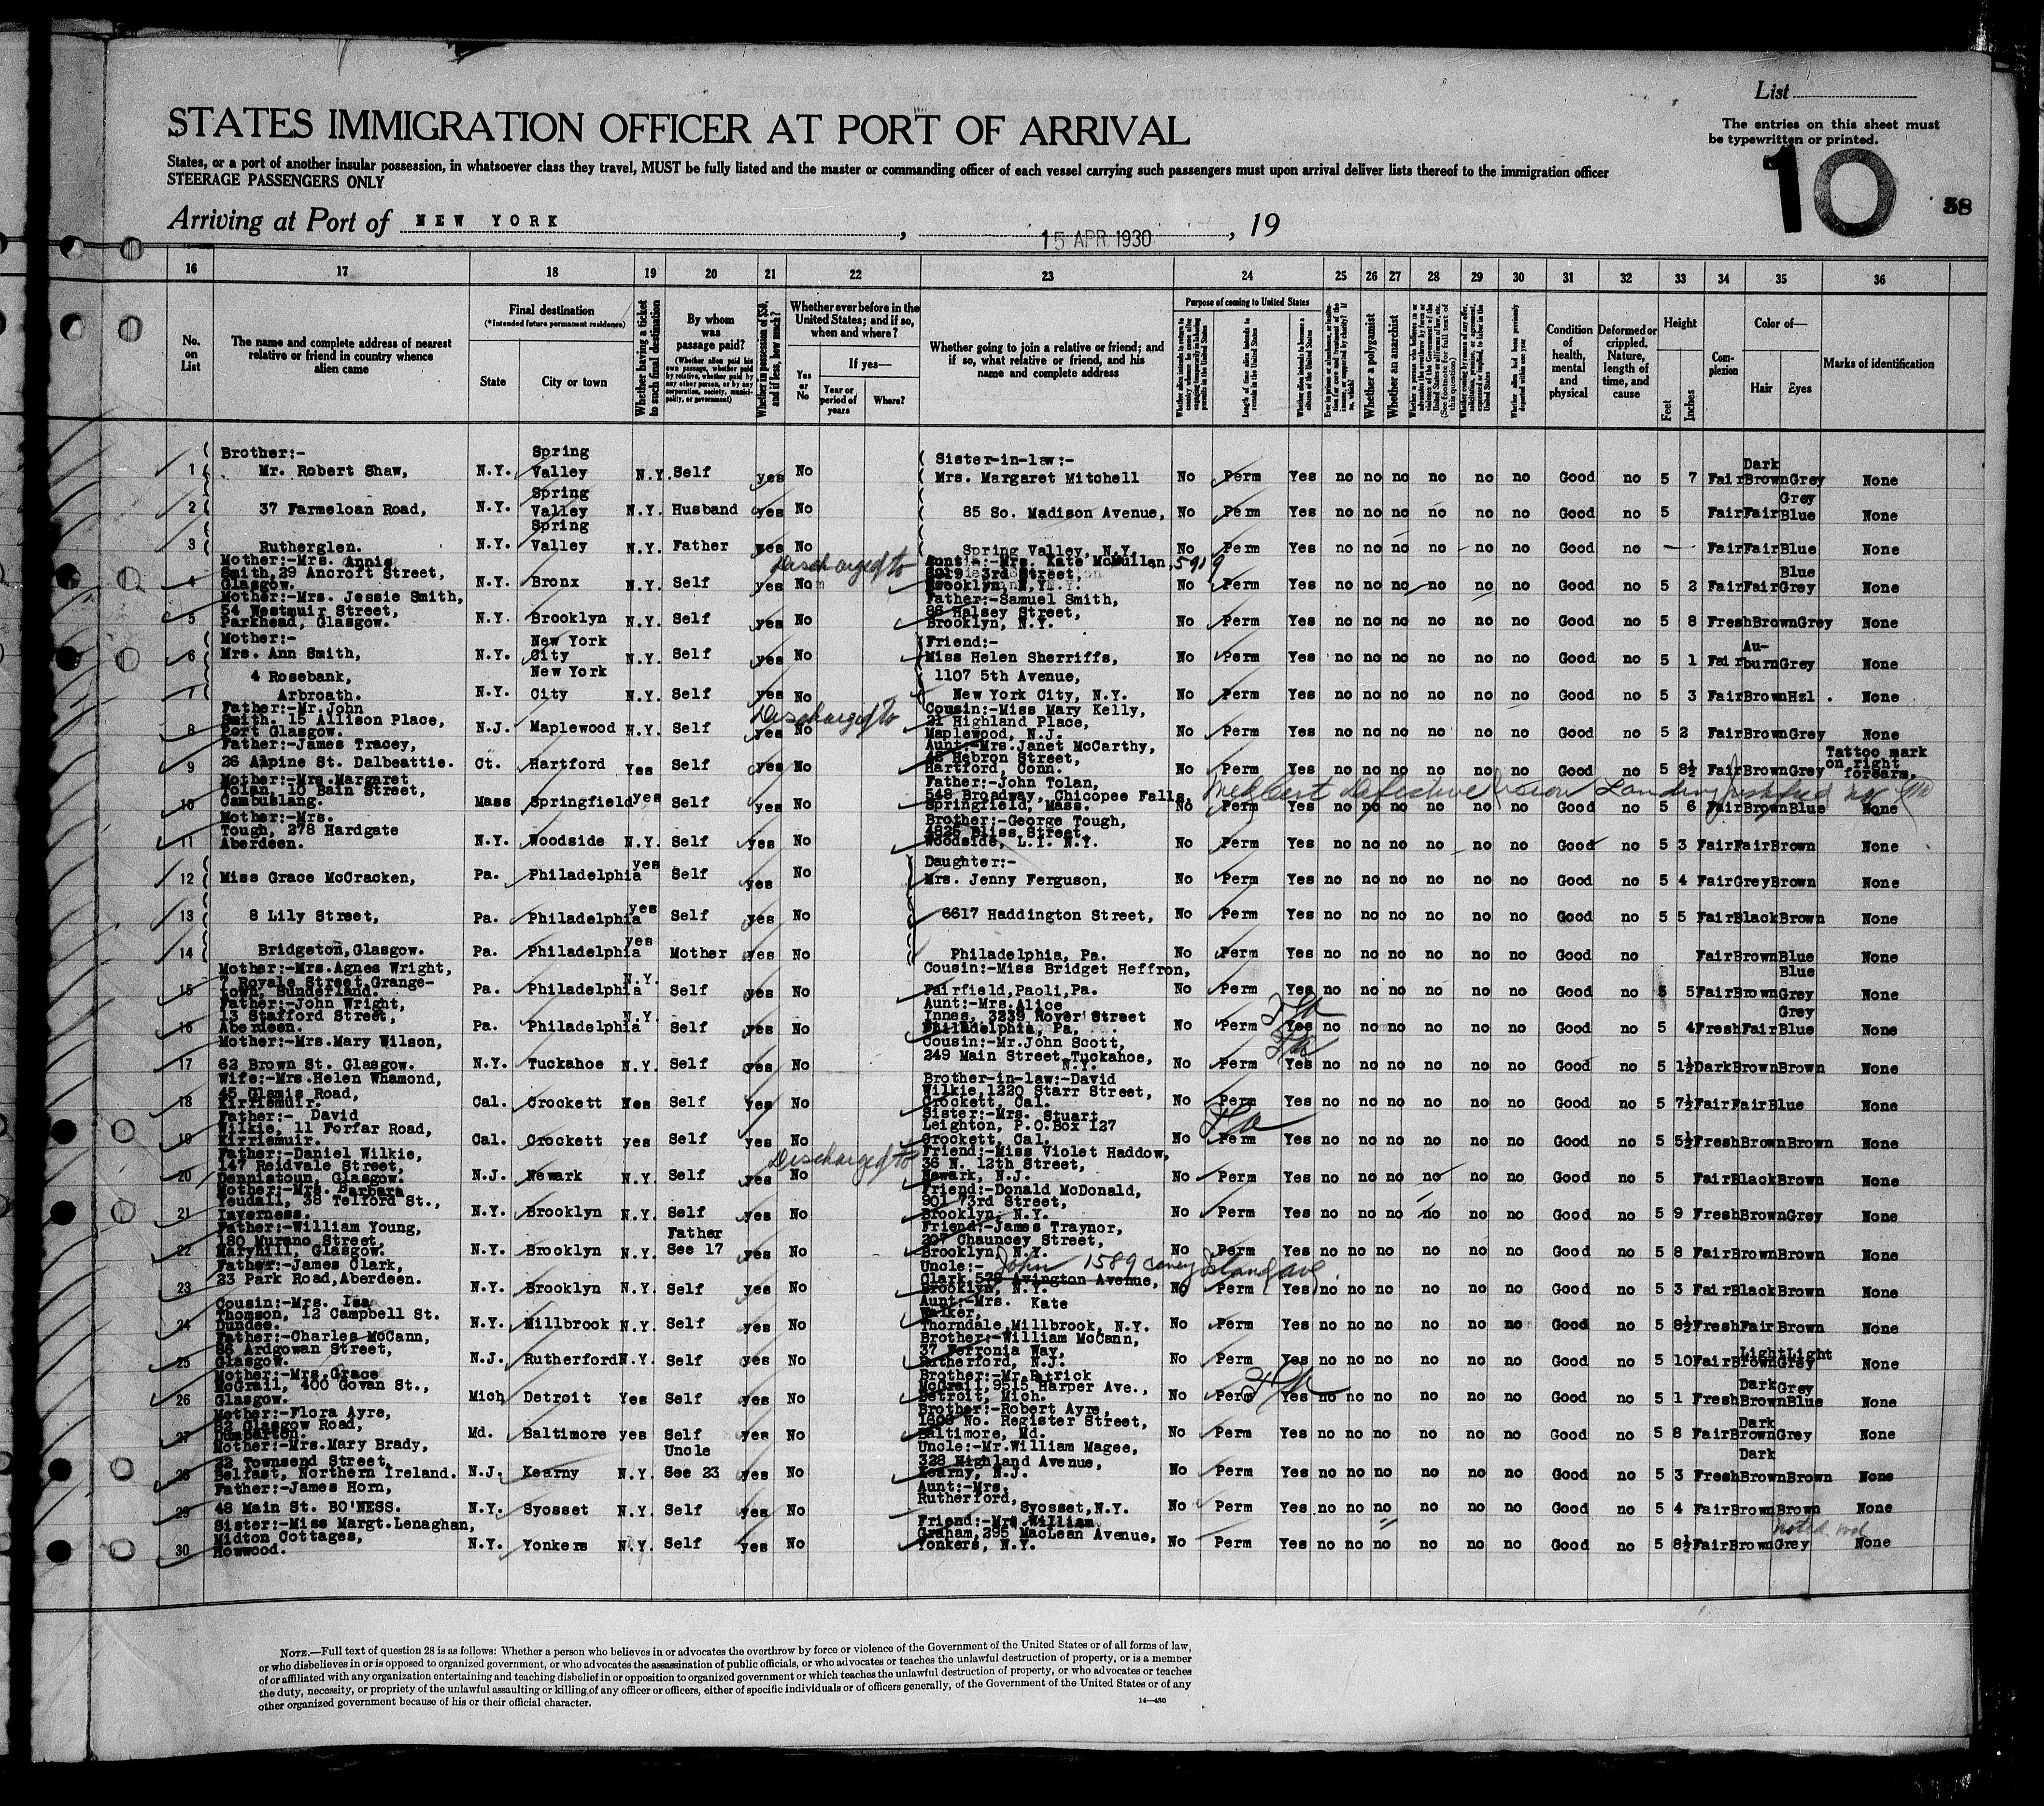 List
STATES IMMIGRATION OFFICER AT PORT OF ARRIVAL
The entries on this sheet must
be typewritten or printed.
States, or a port of another insular possession, in whatsoever class they travel, MUST be fully listed and the master or commanding officer of each vessel carrying such passengers must upon arrival deliver lists thereof to the immigration officer
STEERAGE PASSENGERS ONLY
10
58
Arriving at Port of NEW YORK, 15 APR 1930, 19
16 17 18 19 20 21 22 23 24 25 26 27 28 29 30 31 32 33 34 35 36
No. on List
The name and complete address of nearest relative or friend in country whence alien came
Final destination
(*Intended future permanent residence)
State
City or town
Whether having a ticket to such final destination
By whom was passage paid?
(Whether alien paid his own passage, whether paid by relative, whether paid by any other person, or by any corporation, society, municipality, or government)
Whether in possession of $50, and if less, how much?
Whether ever before in the United States; and if so, when and where?
Yes or No
If yes—
Year or period of years
Where?
Whether going to join a relative or friend; and if so, what relative or friend, and his name and complete address
Purpose of coming to United States
Length of time alien intends to remain in the United States
Whether alien intends to become a citizen of the United States
Whether a polygamist
Whether an anarchist
Condition of health, mental and physical
Deformed or crippled. Nature, length of time, and cause
Height
Feet
Inches
Complexion
Color of—
Hair
Eyes
Marks of identification
1 Brother:- Mr. Robert Shaw, N.Y. Spring Valley N.Y. Self yes No Sister-in-law:- Mrs. Margaret Mitchell No Perm Yes no no no no no no Good no 5 7 Fair Dark Brown Grey None
2 37 Farmeloan Road, N.Y. Spring Valley N.Y. Husband yes No 85 So. Madison Avenue, No Perm Yes no no no no no no Good no 5 Fair Fair Grey Blue None
3 Rutherglen. N.Y. Spring Valley N.Y. Father yes No Spring Valley, N.Y. No Perm Yes no no no no no no Good no — Fair Fair Blue None
4 Mother:-Mrs. Annie Smith, 29 Ancroft Street, Glasgow. N.Y. Bronx N.Y. Self yes No Discharged to Aunt:-Mrs. Kate McMullen, 5919 3rd Street, Brooklyn, N.Y. No Perm Yes no no no no no no Good no 5 2 Fair Fair Blue Grey None
5 Mother:-Mrs. Jessie Smith, 54 Westmuir Street, Parkhead, Glasgow. N.Y. Brooklyn N.Y. Self yes No Father:-Samuel Smith, 86 Halsey Street, Brooklyn, N.Y. No Perm Yes no no no no no no Good no 5 8 Fresh Brown Grey None
6 Mother:- Mrs. Ann Smith, N.Y. New York City N.Y. Self yes No Friend:- Miss Helen Sherriffs, No Perm Yes no no no no no no Good no 5 1 Fair Au-burn Grey None
7 4 Rosebank, Arbroath. N.Y. New York City N.Y. Self yes No 1107 5th Avenue, New York City, N.Y. No Perm Yes no no no no no no Good no 5 3 Fair Brown Hzl. None
8 Father:-Mr.John Smith. 15 Allison Place, Port Glasgow. N.J. Maplewood N.Y. Self yes No Discharged to Cousin:-Miss Mary Kelly, 21 Highland Place, Maplewood, N.J. No Perm Yes no no no no no no Good no 5 2 Fair Brown Grey None
9 Father:-James Tracey, 26 Alpine St. Dalbeattie. Ct. Hartford Yes Self yes No Aunt:-Mrs.Janet McCarthy, 48 Hebron Street, Hartford, Conn. No Perm Yes no no no no no no Good no 5 8½ Fair Brown Grey Tattoo mark on right forearm.
10 Mother:-Mrs.Margaret Tolan, 10 Bain Street, Cambuslang. Mass Springfield yes Self yes No Father:-John Tolan, 548 Broadway, Chicopee Falls, Springfield, Mass. No Perm Yes no no no no no no Good no 5 6 Fair Brown Blue None
Med Cert defective vision Landing
11 Mother:-Mrs. Tough, 278 Hardgate Aberdeen. N.Y. Woodside N.Y. Self yes No Brother:-George Tough, 4825 Bliss Street, Woodside, L.I. N.Y. No Perm Yes no no no no no no Good no 5 3 Fair Fair Brown None
12 Miss Grace McCracken, Pa. Philadelphia yes Self yes No Daughter:- Mrs. Jenny Ferguson, No Perm Yes no no no no no no Good no 5 4 Fair Grey Brown None
13 8 Lily Street, Pa. Philadelphia yes Self yes No 6617 Haddington Street, No Perm Yes no no no no no no Good no 5 5 Fair Black Brown None
14 Bridgeton,Glasgow. Pa. Philadelphia yes Mother yes No Philadelphia, Pa. No Perm Yes no no no no no no Good no Fair Brown Blue None
15 Mother:-Mrs.Agnes Wright, 7 Royale Street,Grange-town, Sunderland. Pa. Philadelphia N.Y. Self yes No Cousin:-Miss Bridget Heffron, Fairfield,Paoli,Pa. No Perm Yes no no no no no no Good no 5 5 Fair Brown Blue Grey None
16 Father:-John Wright, 13 Stafford Street, Aberdeen. Pa. Philadelphia N.Y. Self yes No Aunt:-Mrs.Alice Innes, 3239 Rover Street Philadelphia, Pa. No Perm Yes no no no no no no Good no 5 4 Fresh Fair Grey Blue None
17 Mother:-Mrs.Mary Wilson, 62 Brown St. Glasgow. N.Y. Tuckahoe N.Y. Self yes No Cousin:-Mr.John Scott, 249 Main Street,Tuckahoe, N.Y. No Perm Yes no no no no no no Good no 5 1½ Dark Brown Brown None
18 Wife:-Mrs.Helen Whamond, 45 Glamis Road, Kirriemuir. Cal. Crockett Yes Self yes No Brother-in-law:-David Wilkie,1220 Starr Street, Crockett, Cal. No Perm Yes no no no no no no Good no 5 7½ Fair Fair Blue None
19 Father:- David Wilkie, 11 Forfar Road, Kirriemuir. Cal. Crockett yes Self yes No Sister:-Mrs. Stuart Leighton, P.O.Box 127 Crockett, Cal. No Perm Yes no no no no no no Good no 5 5½ Fresh Brown Brown None
20 Father:-Daniel Wilkie, 147 Reidvale Street, Dennistoun, Glasgow. N.J. Newark N.Y. Self yes No Discharged to Friend:-Miss Violet Haddow, 36 N. 12th Street, Newark, N.J. No Perm Yes no no no no no no Good no 5 Fair Black Brown None
21 Mother:-Mrs. Barbara Yeudall, 38 Telford St., Inverness. N.Y. Brooklyn N.Y. Self yes No Friend:-Donald McDonald, 901 73rd Street, Brooklyn, N.Y. No Perm Yes no no no no no no Good no 5 9 Fresh Brown Grey None
22 Father:-William Young, 180 Murano Street, Maryhill, Glasgow. N.Y. Brooklyn N.Y. Father See 17 yes No Friend:-James Traynor, 207 Chauncey Street, Brooklyn, N.Y. No Perm Yes no no no no no no Good no 5 8 Fair Brown Brown None
23 Father:-James Clark, 23 Park Road,Aberdeen. N.Y. Brooklyn N.Y. Self yes No Uncle:- John 1589 Coney Island ave Clark 579 Avington Avenue, Brooklyn, N.Y. No Perm Yes no no no no no no Good no 5 3 Fair Black Brown None
24 Cousin:-Mrs. Isa Thomson, 12 Campbell St. Dundee. N.Y. Millbrook N.Y. Self yes No Aunt:-Mrs. Kate Walker, Thorndale,Millbrook, N.Y. No Perm Yes no no no no no no Good no 5 8½ Fresh Fair Brown None
25 Father:-Charles McCann, 86 Ardgowan Street, Glasgow. N.J. Rutherford N.Y. Self yes No Brother:-William McCann, 37 Ferronia Way, Rutherford, N.J. No Perm Yes no no no no no no Good no 5 10 Fair Light Brown Light Grey None
26 Mother:-Mrs.Grace McGrail, 400 Govan St., Glasgow. Mich Detroit Yes Self yes No Brother:-Mr.Patrick McGrail,9515 Harper Ave., Detroit, Mich. No Perm Yes no no no no no no Good no 5 1 Fresh Dark Brown Grey Blue None
27 Mother:-Flora Ayre, 82 Glasgow Road, Dumbarton. Md. Baltimore yes Self yes No Brother:-Robert Ayre, 1600 No. Register Street, Baltimore, Md. No Perm Yes no no no no no no Good no 5 8 Fair Dark Brown Grey None
28 Mother:-Mrs.Mary Brady, 22 Townsend Street, Belfast, Northern Ireland. N.J. Kearny N.Y. Uncle See 23 yes No Uncle:-Mr.William Magee, 328 Highland Avenue, Kearny, N.J. No Perm Yes no no no no no no Good no 5 3 Fresh Dark Brown Brown None
29 Father:-James Horn, 48 Main St. BO'NESS. N.Y. Syosset N.Y. Self yes No Aunt:-Mrs. Rutherford, Syosset,N.Y. No Perm Yes no no no no no no Good no 5 4 Fair Brown Brown None
30 Sister:-Miss Margt.Lenaghan, Midton Cottages, Howwood. N.Y. Yonkers N.Y. Self yes No Friend:-Mrs.William Graham,295 MacLean Avenue, Yonkers, N.Y. No Perm Yes no no no no no no Good no 5 8½ Fair Brown Grey None
NOTE.—Full text of question 28 is as follows: Whether a person who believes in or advocates the overthrow by force or violence of the Government of the United States or of all forms of law,
or who disbelieves in or is opposed to organized government, or who advocates the assassination of public officials, or who advocates or teaches the unlawful destruction of property, or is a member
of or affiliated with any organization entertaining and teaching disbelief in or opposition to organized government or which teaches the unlawful destruction of property, or who advocates or teaches
the duty, necessity, or propriety of the unlawful assaulting or killing of any officer or officers, either of specific individuals or of officers generally, of the Government of the United States or of any
other organized government because of his or their official character.
14—430